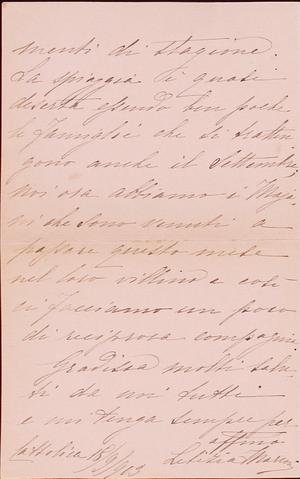 menti di stagione.
La spiaggia è quasi
deserta essendo ben poche
le famiglie che si tratten
gono anche il Settembre;
noi ora abbiamo i Maja
ni che sono venuti a
passare questo mese
nel loro villino e così
ci facciamo un poco
di reciproca compagnia.
Gradisca molti salu-
ti da noi tutti
e mi tenga sempre per
affma
Letizia
Cattolica 18/9/903